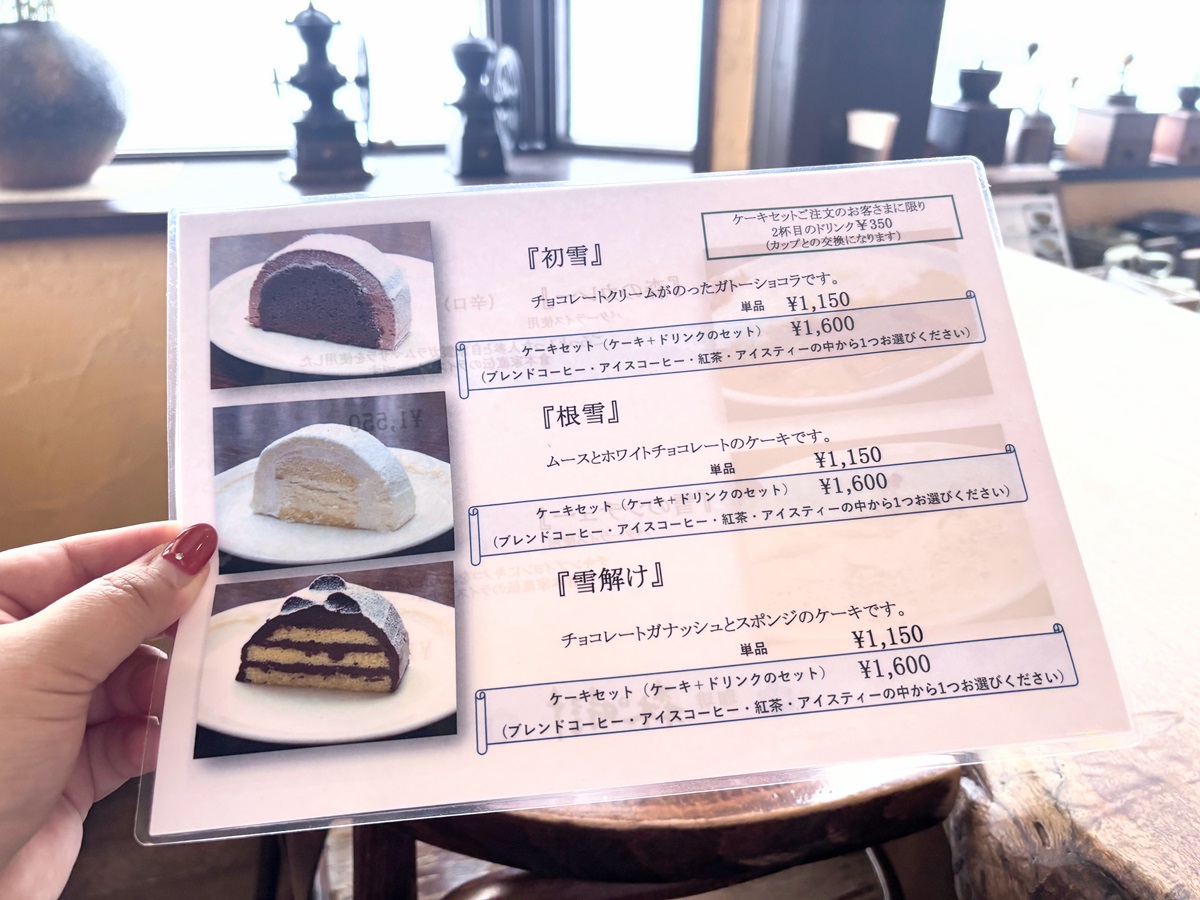 ケーキセットご注文のお客さまに限り
2杯目のドリンク¥350
(カップとの交換になります)
『初雪』
チョコレートクリームがのったガトーショコラです。
単品 ¥1,150
ケーキセット（ケーキ＋ドリンクのセット） ¥1,600
(ブレンドコーヒー・アイスコーヒー・紅茶・アイスティーの中から1つお選びください)
『根雪』
ムースとホワイトチョコレートのケーキです。
単品 ¥1,150
ケーキセット（ケーキ＋ドリンクのセット） ¥1,600
(ブレンドコーヒー・アイスコーヒー・紅茶・アイスティーの中から1つお選びください)
『雪解け』
チョコレートガナッシュとスポンジのケーキです。
単品 ¥1,150
ケーキセット（ケーキ＋ドリンクのセット） ¥1,600
(ブレンドコーヒー・アイスコーヒー・紅茶・アイスティーの中から1つお選びください)